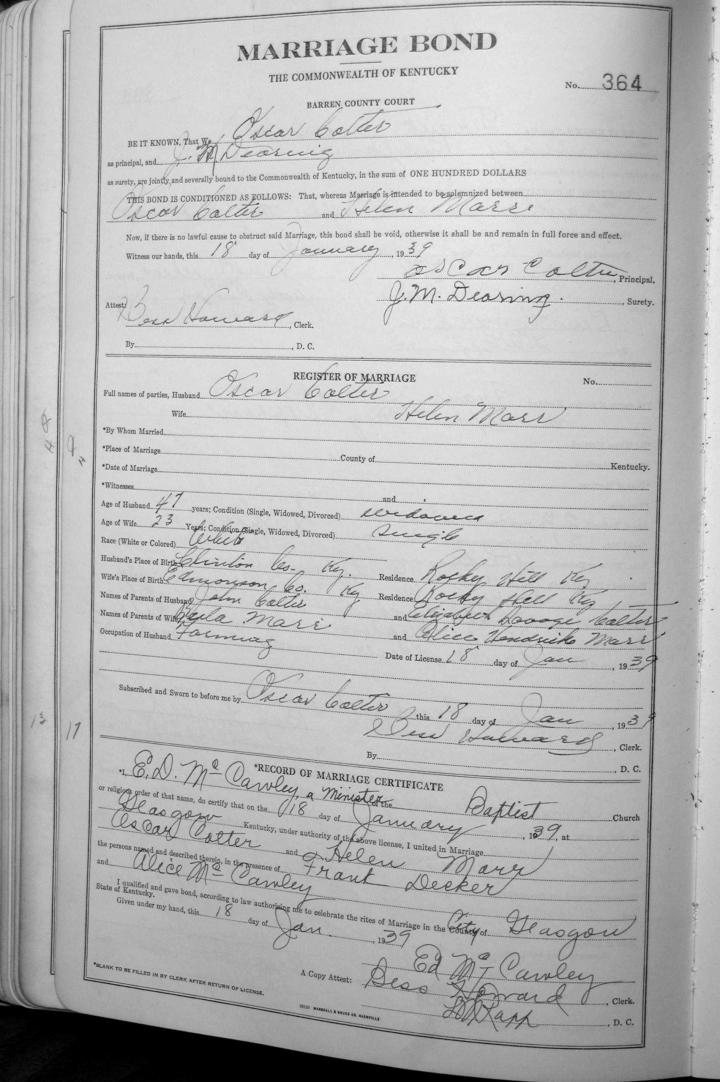 MARRIAGE BOND
THE COMMONWEALTH OF KENTUCKY
No. 364
BARREN COUNTY COURT
BE IT KNOWN, That We Oscar Colter
as principal, and J. M. Dearing
as surety, are jointly and severally bound to the Commonwealth of Kentucky, in the sum of ONE HUNDRED DOLLARS
THIS BOND IS CONDITIONED AS FOLLOWS: That, whereas Marriage is intended to be solemnized between
Oscar Colter and Helen Marr
Now, if there is no lawful cause to obstruct said Marriage, this bond shall be void, otherwise it shall be and remain in full force and effect.
Witness our hands, this 18 day of January, 1939
Oscar Colter, Principal,
J. M. Dearing., Surety.
Attest: Bess Howard, Clerk.
By , D. C.
REGISTER OF MARRIAGE No.
Full names of parties, Husband Oscar Colter
Wife Helen Marr
*By Whom Married
*Place of Marriage County of Kentucky.
*Date of Marriage
*Witnesses and
Age of Husband 47 years; Condition (Single, Widowed, Divorced) widowed
Age of Wife 23 Years; Condition (Single, Widowed, Divorced) single
Race (White or Colored) White
Husband's Place of Birth Clinton Co. Ky. Residence Rocky Hill Ky
Wife's Place of Birth Edmonson Co. Ky Residence Rocky Hill Ky
Names of Parents of Husband John Colter and Elizabeth Colter
Names of Parents of Wife Marr and Alice Hendrick Marr
Occupation of Husband Farming
Date of License 18 day of Jan, 1939
Subscribed and Sworn to before me by Oscar Colter this 18 day of Jan 1939
Bess Howard, Clerk.
By , D. C.
*RECORD OF MARRIAGE CERTIFICATE
*I, E. D. McCawley, a Minister of the Baptist Church
or religious order of that name, do certify that on the 18 day of January, 1939, at
Glasgow Kentucky, under authority of the above license, I united in Marriage
Oscar Colter and Helen Marr
the persons named and described therein, in the presence of Frank Decker
and Alice McCawley
I qualified and gave bond, according to law authorizing me to celebrate the rites of Marriage in the County City of Glasgow
State of Kentucky.
Given under my hand, this 18 day of Jan., 1939
Ed McCawley
A Copy Attest: Bess Howard, Clerk.
, D. C.
*BLANK TO BE FILLED IN BY CLERK AFTER RETURN OF LICENSE.
MARSHALL & BRUCE CO. NASHVILLE
13
17